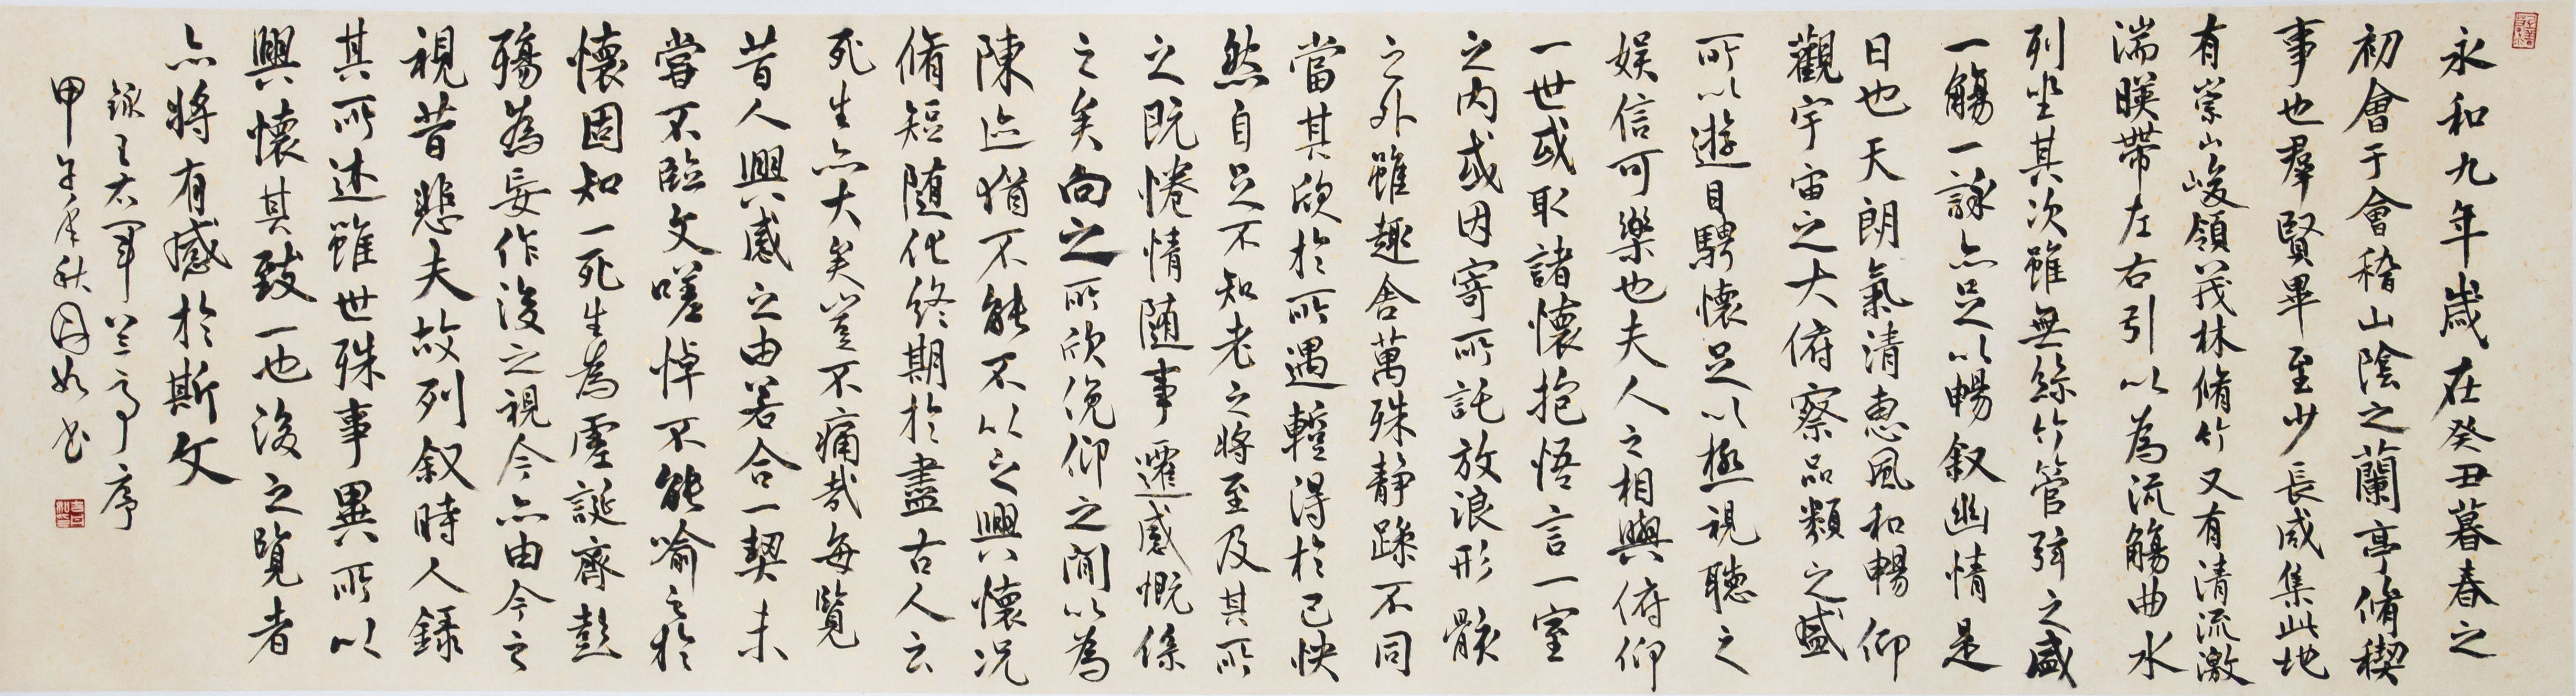 永和九年歲在癸丑暮春之
初會于會稽山陰之蘭亭脩稧
事也羣賢畢至少長咸集此地
有崇山峻領茂林脩竹又有清流激
湍暎帶左右引以為流觴曲水
列坐其次雖無絲竹管弦之盛
一觴一詠亦足以暢叙幽情是
日也天朗氣清惠風和暢仰
觀宇宙之大俯察品類之盛
所以遊目騁懷足以極視聽之
娱信可樂也夫人之相與俯仰
一世或取諸懷抱悟言一室
之內或因寄所託放浪形骸
之外雖趣舍萬殊静躁不同
當其欣於所遇蹔得於己快
然自足不知老之將至及其所
之既惓情随事遷感慨係
之矣向之所欣俛仰之閒以為
陳迹猶不能不以之興懷況
脩短随化終期於盡古人云
死生亦大矣豈不痛哉每覽
昔人興感之由若合一契未
嘗不臨文嗟悼不能喻之於
懷固知一死生為虛誕齊彭
殤為妄作後之視今亦由今之
視昔悲夫故列叙時人錄
其所述雖世殊事異所以
興懷其致一也後之覽者
亦將有感於斯文
錄王右軍蘭亭序
甲午年秋月如书